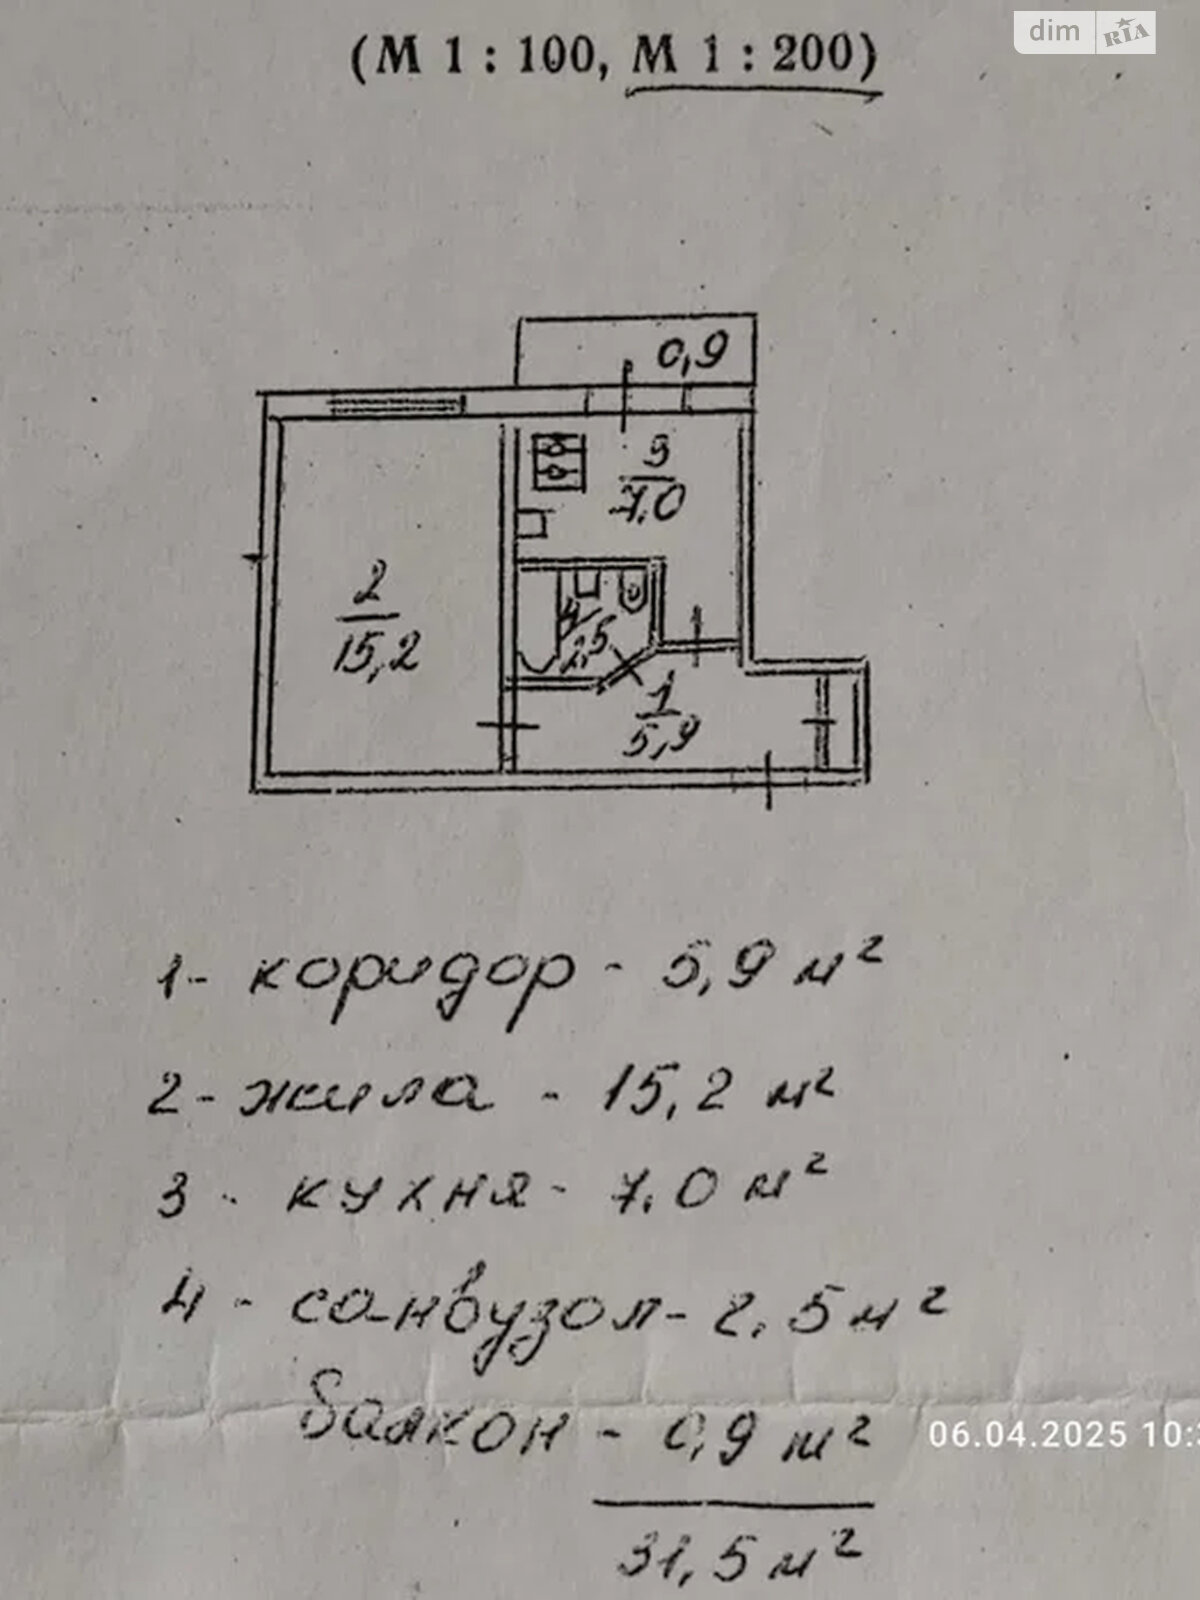 dim RIA
(М 1 : 100, М 1 : 200)
0,9
3
7.0
2
15,2
4
2,5
1
5,9
1- коридор - 5,9 м²
2- жила - 15,2 м²
3 - кухня - 7.0 м²
4 - санвузол - 2.5 м²
Балкон - 0,9 м²
06.04.2025 10:3
31,5 м²